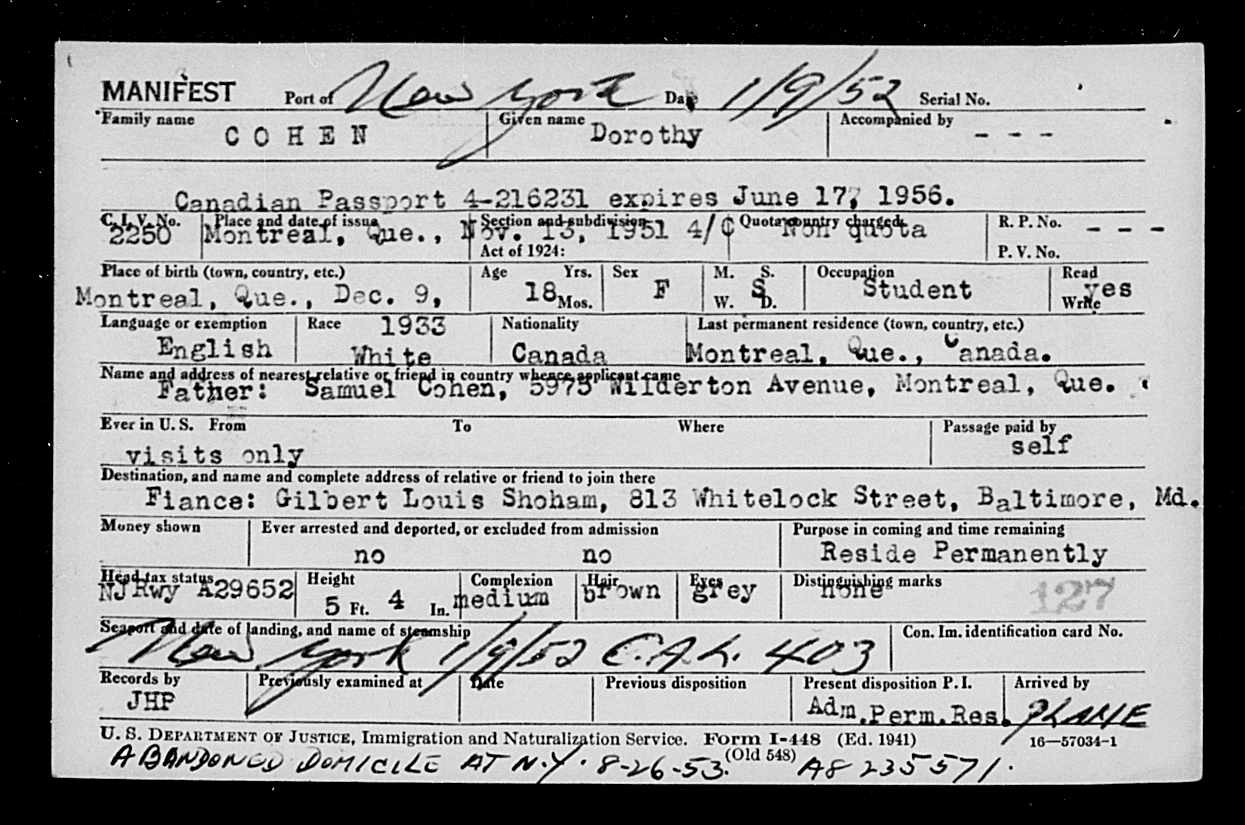 MANIFEST Port of New York Date 1/9/52 Serial No.
Family name Given name Accompanied by
COHEN Dorothy - - -
Canadian Passport 4-216231 expires June 17, 1956.
C.I.V. No. Place and date of issue Section and subdivision Quota country charged R. P. No. - - -
2250 Montreal, Que., Nov. 13, 1951 4/C Non quota
Act of 1924: P. V. No.
Place of birth (town, country, etc.) Age Yrs. Sex M. S. Occupation Read
Montreal, Que., Dec. 9, 18 Mos. F W. S D. Student Write yes
Language or exemption Race 1933 Nationality Last permanent residence (town, country, etc.)
English White Canada Montreal, Que., Canada.
Name and address of nearest relative or friend in country whence applicant came
Father: Samuel Cohen, 5975 Wilderton Avenue, Montreal, Que.
Ever in U. S. From To Where Passage paid by
visits only self
Destination, and name and complete address of relative or friend to join there
Fiance: Gilbert Louis Shoham, 813 Whitelock Street, Baltimore, Md.
Money shown Ever arrested and deported, or excluded from admission Purpose in coming and time remaining
no no Reside Permanently
Head tax status Height Complexion Hair Eyes Distinguishing marks
NJRwy A29652 5 Ft. 4 In. medium brown grey none 127
Seaport and date of landing, and name of steamship Con. Im. identification card No.
New York 1/9/52 C.A.L. 403
Records by Previously examined at Date Previous disposition Present disposition P. I. Arrived by
JHP Adm.Perm.Res. PLANE
U. S. DEPARTMENT OF JUSTICE, Immigration and Naturalization Service. Form I-448 (Ed. 1941) 16—57034-1
(Old 548)
ABANDONED DOMICILE AT N.Y. 8-26-53. A8 235571.